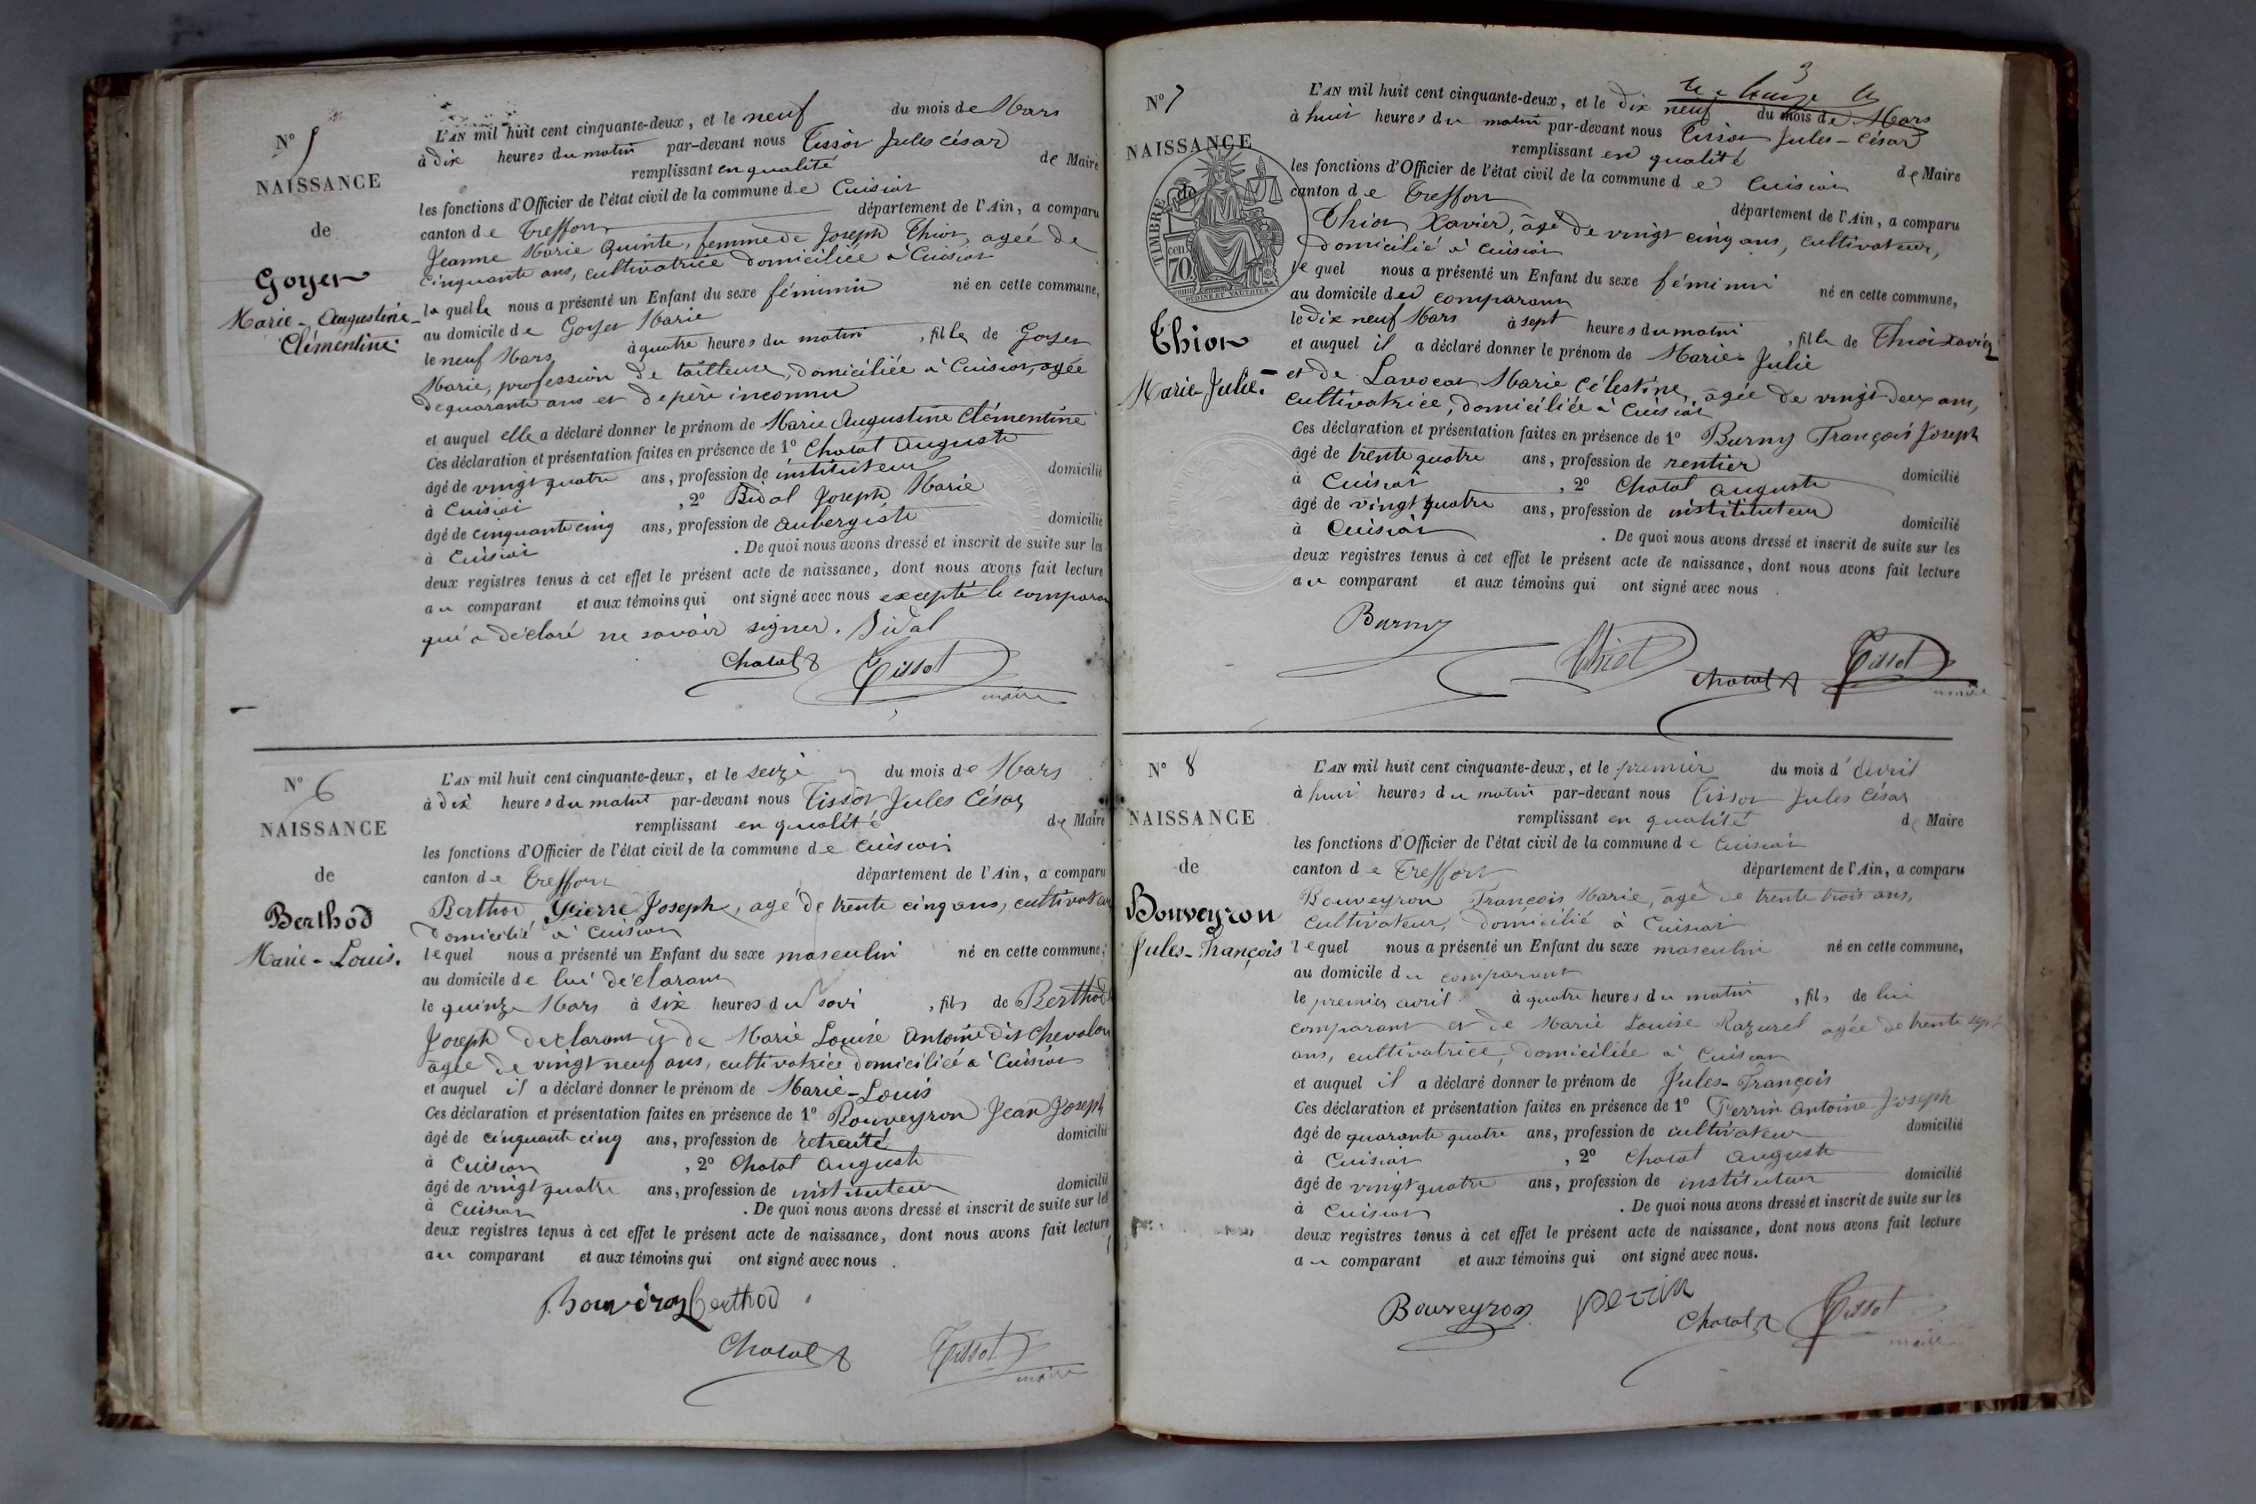 N° 5
NAISSANCE
de
Goyet
Marie-Augustine
Clémentine.
L'AN mil huit cent cinquante-deux, et le neuf du mois de Mars
à dix heures du matin par-devant nous Tissot Jules César
remplissant en qualité de Maire
les fonctions d'Officier de l'état civil de la commune de Cuisiat
canton de Treffort département de l'Ain, a comparu
Jeanne Marie Quinte, femme de Joseph Thiot, agée de
Cinquante ans, cultivatrice domiciliée à Cuisiat
laquelle nous a présenté un Enfant du sexe féminin né en cette commune,
au domicile de Goyet Marie
le neuf Mars à quatre heures du matin, fille de Goyet
Marie, profession de tailleuse, domiciliée à Cuisiat, agée
de quarante ans et de père inconnu
et auquel elle a déclaré donner le prénom de Marie Augustine Clémentine
Ces déclaration et présentation faites en présence de 1° Chatal Auguste
âgé de vingt quatre ans, profession de instituteur domicilié
à Cuisiat, 2° Bidal Joseph Marie
âgé de cinquante cinq ans, profession de aubergiste domicilié
à Cuisiat. De quoi nous avons dressé et inscrit de suite sur les
deux registres tenus à cet effet le présent acte de naissance, dont nous avons fait lecture
au comparant et aux témoins qui ont signé avec nous excepté le comparant
qui a déclaré ne savoir signer. Bidal
Chatal Tissot
maire
N° 6
NAISSANCE
de
Berthod
Marie-Louis.
L'AN mil huit cent cinquante-deux, et le seize du mois de Mars
à dix heures du matin par-devant nous Tissot Jules César
remplissant en qualité de Maire
les fonctions d'Officier de l'état civil de la commune de Cuisiat
canton de Treffort département de l'Ain, a comparu
Berthod Pierre Joseph, agé de trente cinq ans, cultivateur
domicilié à Cuisiat
lequel nous a présenté un Enfant du sexe masculin né en cette commune,
au domicile de lui déclarant
le quinze Mars à six heures du soir, fils de Berthod
Joseph déclarant et de Marie Louise Antoine dit Chevalon
agée de vingt neuf ans, cultivatrice domiciliée à Cuisiat
et auquel il a déclaré donner le prénom de Marie-Louis
Ces déclaration et présentation faites en présence de 1° Bouveyron Jean Joseph
âgé de cinquante cinq ans, profession de retraité domicilié
à Cuisiat, 2° Chatal Auguste
âgé de vingt quatre ans, profession de instituteur domicilié
à Cuisiat. De quoi nous avons dressé et inscrit de suite sur les
deux registres tenus à cet effet le présent acte de naissance, dont nous avons fait lecture
au comparant et aux témoins qui ont signé avec nous.
Bouvéron Berthod
Chatal Tissot
maire
N° 7
NAISSANCE
de
TIMBRE
70
Thiot
Marie Julie.
3
L'AN mil huit cent cinquante-deux, et le dix neuf du mois de Mars
à huit heures du matin par-devant nous Tissot Jules-César
remplissant en qualité de Maire
les fonctions d'Officier de l'état civil de la commune de Cuisiat
canton de Treffort département de l'Ain, a comparu
Thiot Xavier, âgé de vingt cinq ans, cultivateur,
domicilié à Cuisiat
lequel nous a présenté un Enfant du sexe féminin né en cette commune,
au domicile du comparant
le dix neuf Mars à sept heures du matin, fille de Thiot Xavier
et auquel il a déclaré donner le prénom de Marie-Julie
et de Lavocat Marie Célestine, âgée de vingt deux ans,
cultivatrice, domiciliée à Cuisiat
Ces déclaration et présentation faites en présence de 1° Burny François Joseph
âgé de trente quatre ans, profession de rentier domicilié
à Cuisiat, 2° Chatal Auguste
âgé de vingt quatre ans, profession de instituteur domicilié
à Cuisiat. De quoi nous avons dressé et inscrit de suite sur les
deux registres tenus à cet effet le présent acte de naissance, dont nous avons fait lecture
au comparant et aux témoins qui ont signé avec nous.
Burny Thiot Chatal Tissot
maire
N° 8
NAISSANCE
de
Bouveyron
Jules-François
L'AN mil huit cent cinquante-deux, et le premier du mois d'avril
à huit heures du matin par-devant nous Tissot Jules César
remplissant en qualité de Maire
les fonctions d'Officier de l'état civil de la commune de Cuisiat
canton de Treffort département de l'Ain, a comparu
Bouveyron François Marie, âgé de trente trois ans,
cultivateur, domicilié à Cuisiat
lequel nous a présenté un Enfant du sexe masculin né en cette commune,
au domicile du comparant
le premier avril à quatre heures du matin, fils de lui
comparant et de Marie Louise Razurel agée de trente sept
ans, cultivatrice, domiciliée à Cuisiat
et auquel il a déclaré donner le prénom de Jules-François
Ces déclaration et présentation faites en présence de 1° Perrin Antoine Joseph
âgé de quarante quatre ans, profession de cultivateur domicilié
à Cuisiat, 2° Chatal Auguste
âgé de vingt quatre ans, profession de instituteur domicilié
à Cuisiat. De quoi nous avons dressé et inscrit de suite sur les
deux registres tenus à cet effet le présent acte de naissance, dont nous avons fait lecture
au comparant et aux témoins qui ont signé avec nous.
Bouveyron perrin Chatal Tissot
maire